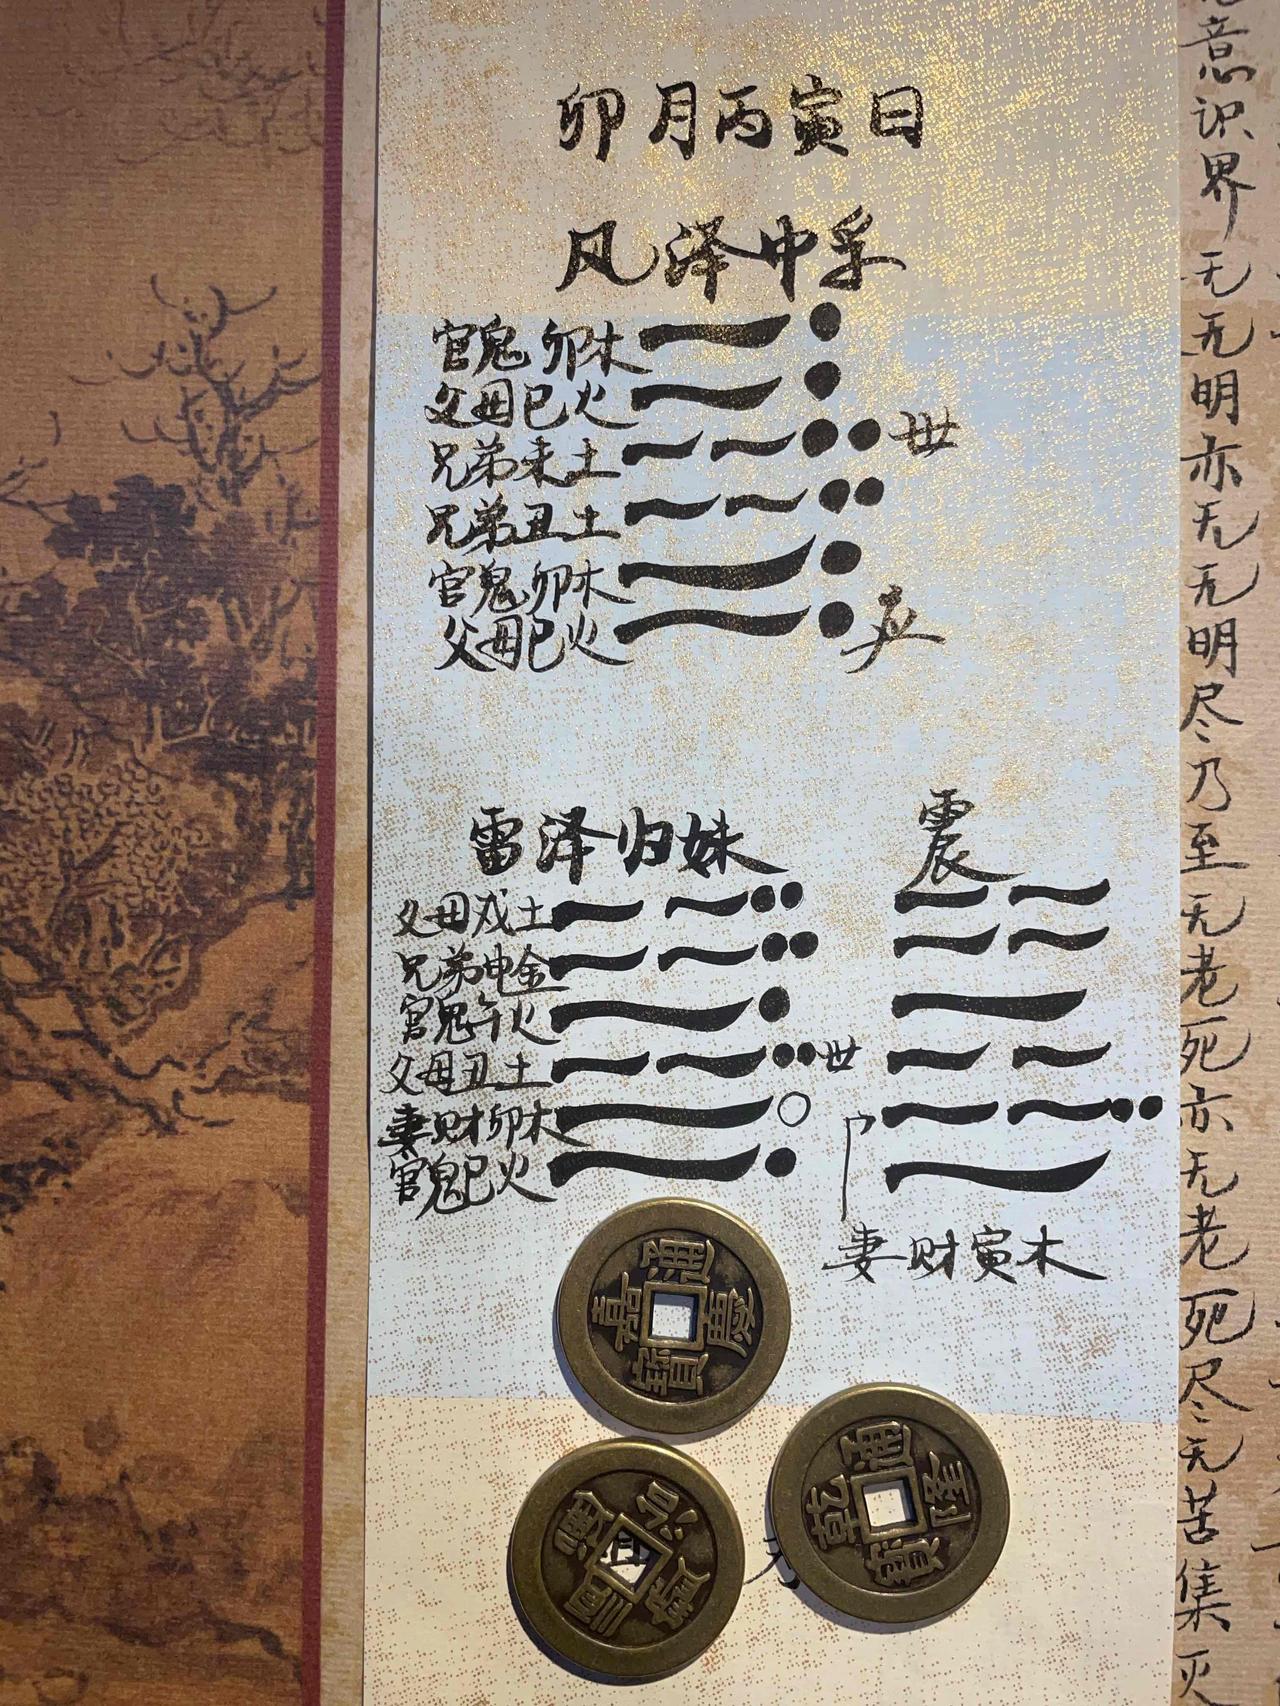 卯月丙寅日
风泽中孚
官鬼卯木
父母巳火
兄弟未土 世
兄弟丑土
官鬼卯木
父母巳火 应
雷泽归妹
父母戌土
兄弟申金
官鬼午火
父母丑土 世
妻财卯木
官鬼巳火
震
妻财寅木
嘉慶通寶
乾隆通寶
意识界无无明亦无无明尽乃至无老死亦无老死尽无苦集灭